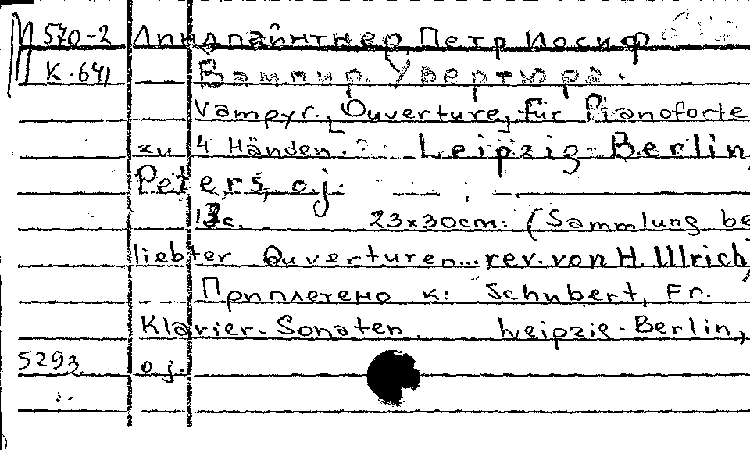 М 570-2 Линдпайнтнер, Петр Иосиф
К.641 Вампир. Увертюра.
Vampyr. Ouverture, für Pianoforte
zu 4 Händen. Leipzig-Berlin,
Peters, o.j.
13 с. 23x30cm. (Sammlung be
liebter Ouverturen... rev. von H. Ulrich)
Приплетено к: Schubert, Fr.
Klavier-Sonaten. Leipzig-Berlin,
5293 o.j.